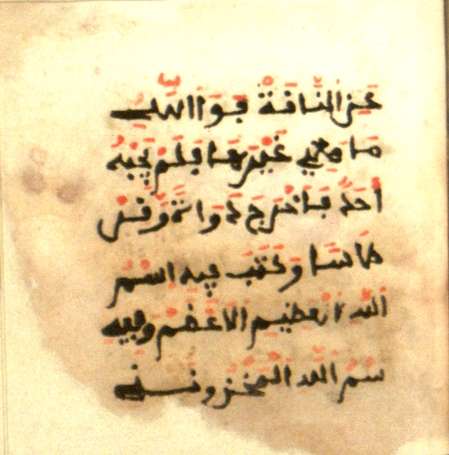 عَنِ النَّاقَةِ فَوَ اللَّهِ
مَا مَعِي غَيْرُهَا فَلَمْ يُجِبْهُ
أَحَدٌ فَأَخْرَجَ دَوَاةً وَقِرْ
طَاسًا وَكَتَبَ فِيهِ اِسْمَ
اللَّهِ الْعَظِيمِ الْأَعْظَمِ وَفِيهِ
سْمُ اللَّهِ الْمَخْزُون